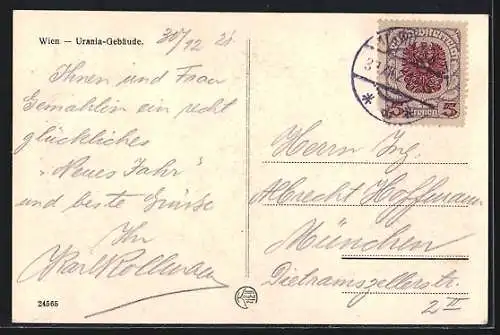 Wien — Urania-Gebäude.
30/12 21
Ihnen und Frau
Gemahlin ein recht
glückliches
„Neues Jahr"
und beste Grüße
Ihr
Karl
24565
Deutschösterreich
5 5
Kronen
Herrn Ing.
Albrecht Hoffmann
München
Dietramszellerstr.
2 II